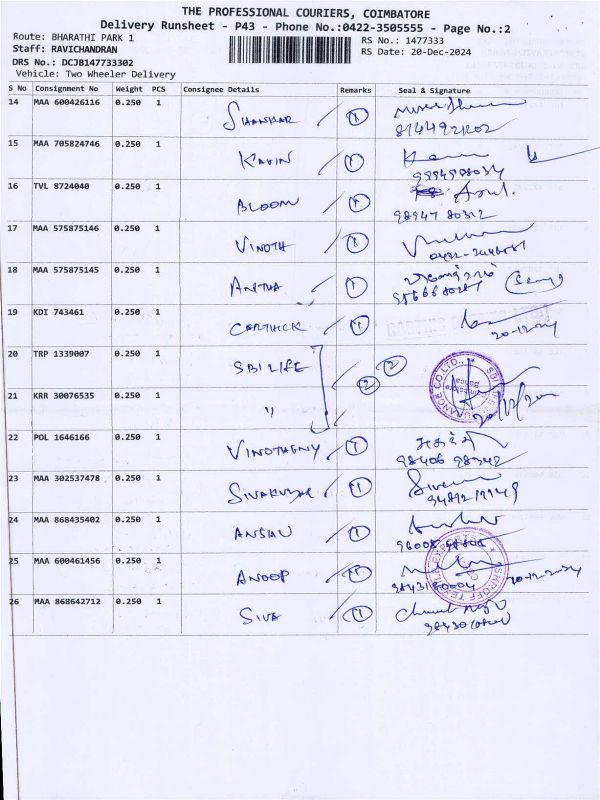 THE PROFESSIONAL COURIERS, COIMBATORE
Delivery Runsheet - P43 - Phone No.:0422-3505555 - Page No.:2
Route: BHARATHI PARK 1
RS No.: 1477333
Staff: RAVICHANDRAN
RS Date: 20-Dec-2024
DRS No.: DCJB147733302
Vehicle: Two Wheeler Delivery
S No Consignment No Weight PCS Consignee Details Remarks Seal & Signature
14 MAA 600426116 0.250 1 SHANKAR 1
15 MAA 705824746 0.250 1 KAVIN 1
16 TVL 8724040 0.250 1 BLOOM 1
98947 80312
17 MAA 575875146 0.250 1 VINOTH 1
18 MAA 575875145 0.250 1 ANITHA 1
19 KDI 743461 0.250 1 CARTHICK 1
20-12-24
20 TRP 1339007 0.250 1 SBI LIFE 2
21 KRR 30076535 0.250 1 " 2
22 POL 1646166 0.250 1 1
98406 98342
23 MAA 302537478 0.250 1 SIVAKUMAR 1
24 MAA 868435402 0.250 1 1
25 MAA 600461456 0.250 1 ANOOP 1
20-12-24
26 MAA 868642712 0.250 1 SIVA 1